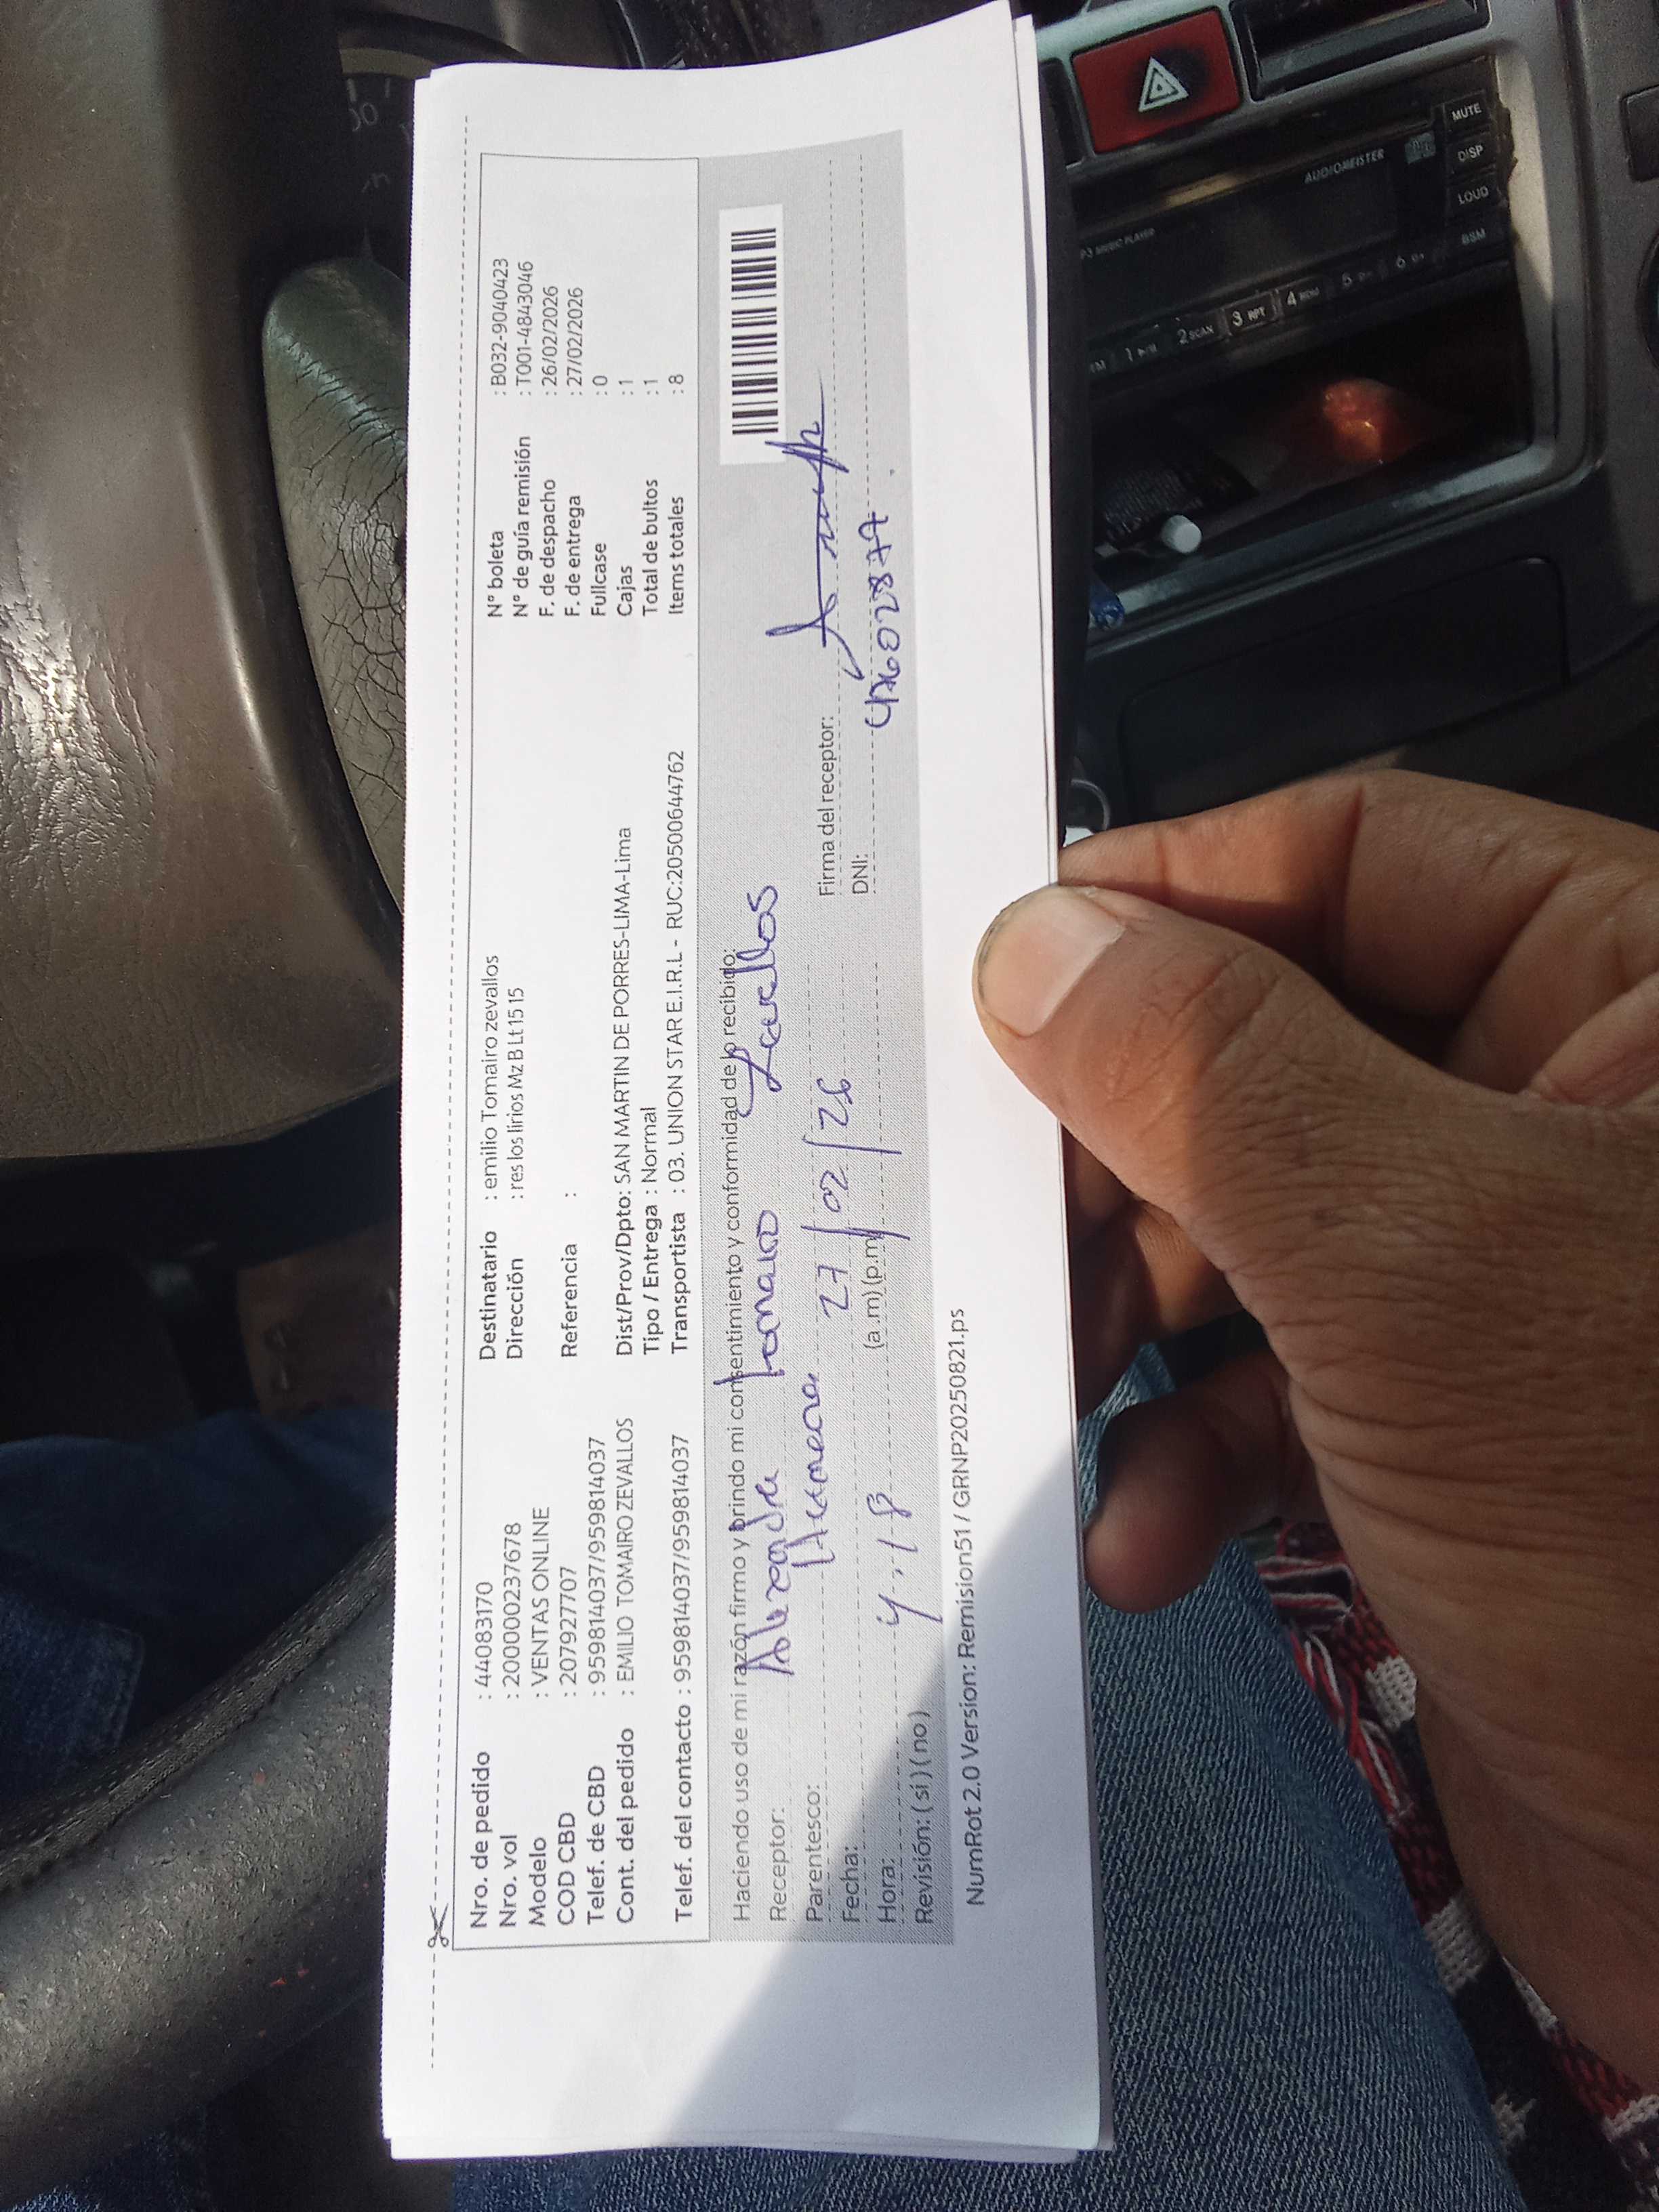 Nro. de pedido : 44083170
Nro. vol : 200000237678
Modelo : VENTAS ONLINE
COD CBD : 207927707
Telef. de CBD : 959814037/959814037
Cont. del pedido : EMILIO TOMAIRO ZEVALLOS
Telef. del contacto : 959814037/959814037
Destinatario : emilio Tomairo zevallos
Dirección : res los lirios Mz B Lt 15 15
Referencia :
Dist/Prov/Dpto: SAN MARTIN DE PORRES-LIMA-Lima
Tipo / Entrega : Normal
Transportista : 03. UNION STAR E.I.R.L - RUC:20500644762
N° boleta : B032-9040423
N° de guía remisión : T001-4843046
F. de despacho : 26/02/2026
F. de entrega : 27/02/2026
Fullcase : 0
Cajas : 1
Total de bultos : 1
Items totales : 8
Haciendo uso de mi razón firmo y brindo mi consentimiento y conformidad de lo recibido:
Receptor: Tomairo Zevallos
Parentesco: Hermana
Fecha: 27/02/26
Hora: (a.m)(p.m
Revisión: ( si ) ( no )
Firma del receptor:
DNI: 47602877
NumRot 2.0 Version: Remision51 / GRNP20250821.ps
AUDIOMEISTER
P3 MUSIC PLAYER
MUTE
DISP
LOUD
BSM
1
2 SCAN
3 RPT
4
5
6